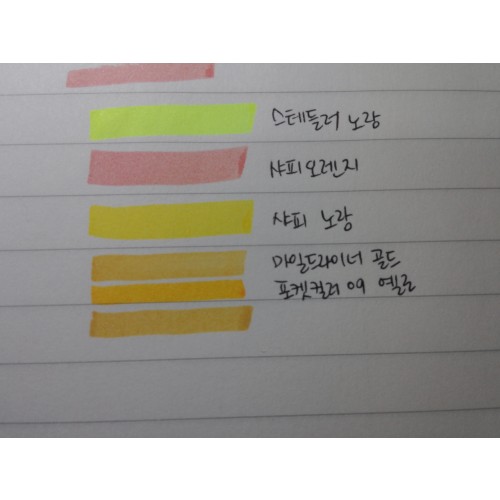 스테들러 노랑
샤피오렌지
샤피 노랑
마일드라이너 골드
포켓컬러 09 옐로